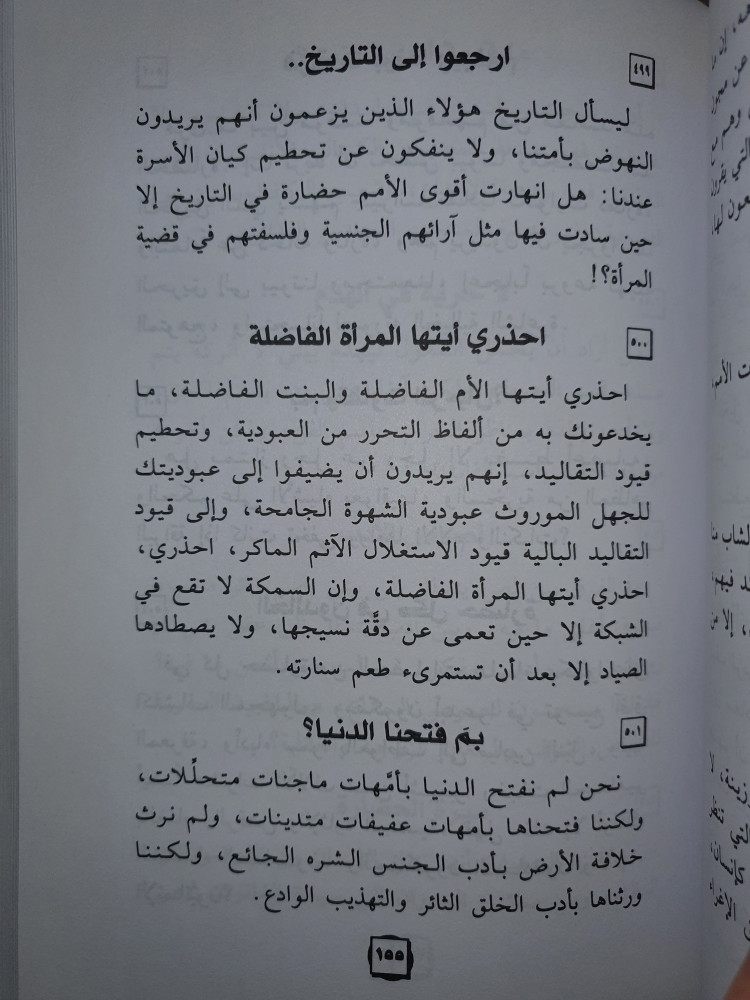 ٤٩٩
ارجعوا إلى التاريخ..
ليسأل التاريخ هؤلاء الذين يزعمون أنهم يريدون
النهوض بأمتنا، ولا ينفكون عن تحطيم كيان الأسرة
عندنا: هل انهارت أقوى الأمم حضارة في التاريخ إلا
حين سادت فيها مثل آرائهم الجنسية وفلسفتهم في قضية
المرأة؟!
٥٠٠
احذري أيتها المرأة الفاضلة
احذري أيتها الأم الفاضلة والبنت الفاضلة، ما
يخدعونك به من ألفاظ التحرر من العبودية، وتحطيم
قيود التقاليد، إنهم يريدون أن يضيفوا إلى عبوديتك
للجهل الموروث عبودية الشهوة الجامحة، وإلى قيود
التقاليد البالية قيود الاستغلال الآثم الماكر، احذري،
احذري أيتها المرأة الفاضلة، وإن السمكة لا تقع في
الشبكة إلا حين تعمى عن دقَّة نسيجها، ولا يصطادها
الصياد إلا بعد أن تستمرىء طعم سنارته.
٥٠١
بمَ فتحنا الدنيا؟
نحن لم نفتح الدنيا بأمَّهات ماجنات متحلِّلات،
ولكننا فتحناها بأمهات عفيفات متدينات، ولم نرث
خلافة الأرض بأدب الجنس الشره الجائع، ولكننا
ورثناها بأدب الخلق الثائر والتهذيب الوادع.
١٥٥